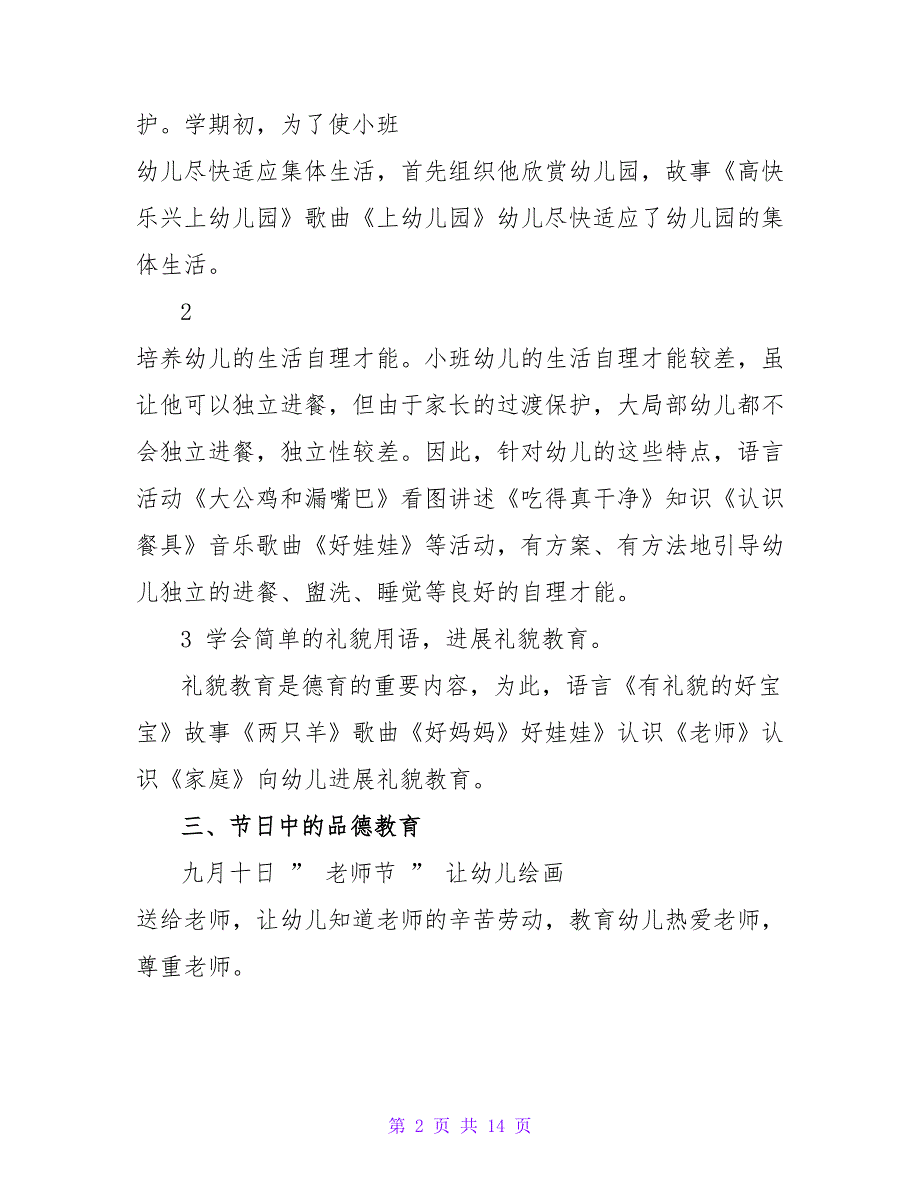 护。学期初，为了使小班
幼儿尽快适应集体生活，首先组织他欣赏幼儿园，故事《高快
乐兴上幼儿园》歌曲《上幼儿园》幼儿尽快适应了幼儿园的集
体生活。
2
培养幼儿的生活自理才能。小班幼儿的生活自理才能较差，虽
让他可以独立进餐，但由于家长的过渡保护，大局部幼儿都不
会独立进餐，独立性较差。因此，针对幼儿的这些特点，语言
活动《大公鸡和漏嘴巴》看图讲述《吃得真干净》知识《认识
餐具》音乐歌曲《好娃娃》等活动，有方案、有方法地引导幼
儿独立的进餐、盥洗、睡觉等良好的自理才能。
3 学会简单的礼貌用语，进展礼貌教育。
礼貌教育是德育的重要内容，为此，语言《有礼貌的好宝
宝》故事《两只羊》歌曲《好妈妈》好娃娃》认识《老师》认
识《家庭》向幼儿进展礼貌教育。
三、节日中的品德教育
九月十日 ” 老师节 ” 让幼儿绘画
送给老师，让幼儿知道老师的辛苦劳动，教育幼儿热爱老师，
尊重老师。
第 2 页 共 14 页